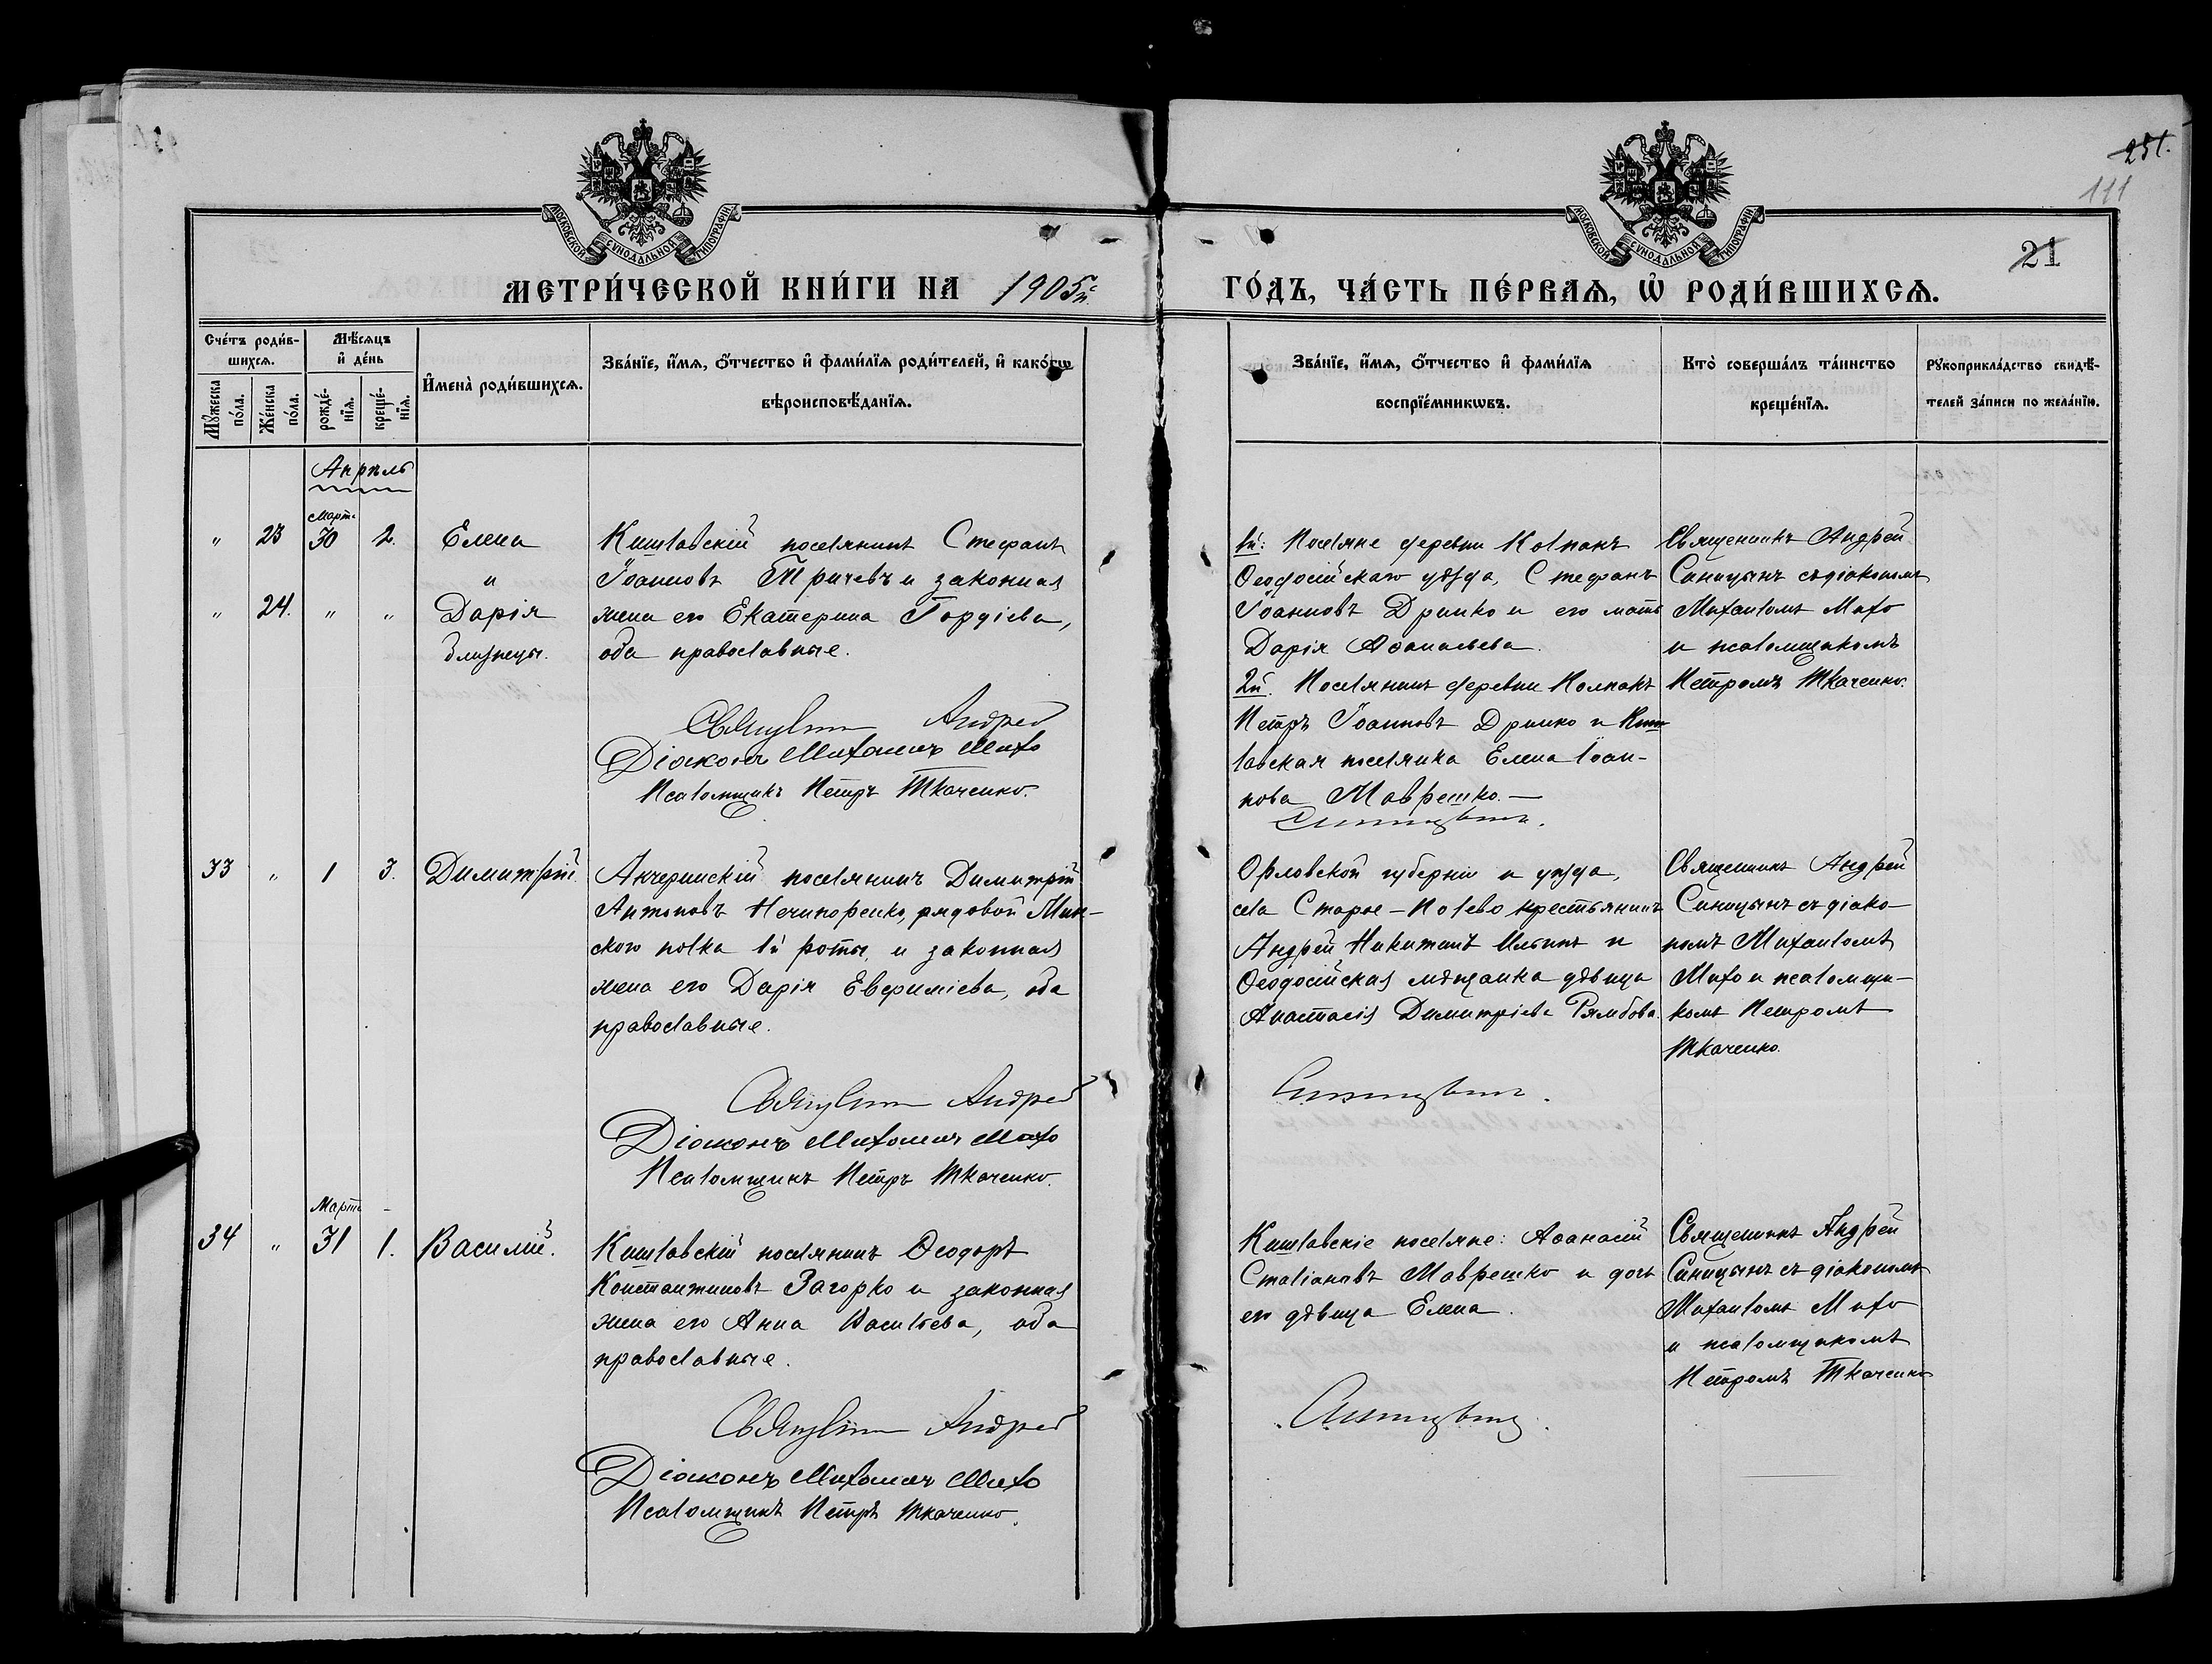 251.
111
21
МОСКОВСКОЙ СУНОДАЛЬНОЙ ТИПОГРАФІИ
МОСКОВСКОЙ СУНОДАЛЬНОЙ ТИПОГРАФІИ
МЕТРИ́ЧЕСКОЙ КНИ́ГИ НА 1905й.
ГО́ДЪ, ЧА́СТЬ ПЕ́РВАѦ, Ѡ҆ РОДИ́ВШИХСѦ.
Сче́тъ роди́в-
шихсѧ.
Мꙋ́жеска по́ла.
Же́нска по́ла.
Мѣ́сѧцъ
и҆ де́нь
рожде́-
нїѧ.
креще́-
нїѧ.
И҆мена̀ роди́вшихсѧ.
Зва́нїе, и҆́мѧ, ѻ҆́тчество и҆ фами́лїѧ роди́телей, и҆ како́гѡ
вѣроисповѣ́данїѧ.
Зва́нїе, и҆́мѧ, ѻ҆́тчество и҆ фами́лїѧ
воспрїе́мникѡвъ.
Кто̀ соверша́лъ та́инство
креще́нїѧ.
Рꙋкоприкла́дство свидѣ́-
телей за́писи по жела́нїю.
Апрѣль
Мартъ
" 23 30 2. Елена
и
" 24. " " Дарія
близнецы.
Кишлавскій поселянинъ Стефанъ
Іоанновъ Тричевъ и законная
жена его Екатерина Гордіева,
оба православные.
Священникъ Андрей
Діаконъ Михаилъ Махо
Псаломщикъ Петръ Ткаченко.
1й: Поселяне деревни Колпакъ
Ѳеодосійскаго уѣзда, Стефанъ
Іоанновъ Дримко и его мать
Дарія Аѳанасьева.
2й. Поселянинъ деревни Колпакъ
Петръ Іоанновъ Дримко и Киш-
лавская поселянка Елена Іоан-
нова Маврешко.—
Синицынъ.
Священникъ Андрей
Синицынъ съ діакономъ
Михаиломъ Махо
и псаломщикомъ
Петромъ Ткаченко.
33 " 1 3. Димитрій.
Акчеринскій поселянинъ Димитрій
Антоновъ Нечипоренко, рядовой Мин-
скаго полка 1й роты, и законная
жена его Дарія Евфиміева, оба
православные.
Священникъ Андрей
Діаконъ Михаилъ Махо
Псаломщикъ Петръ Ткаченко.
Орловской губерніи и уѣзда,
села Старое-Полево крестьянинъ
Андрей Никитинъ Ильинъ и
Ѳеодосійская мѣщанка дѣвица
Анастасія Димитріева Рямбова.
Синицынъ.
Священникъ Андрей
Синицынъ съ діако-
номъ Михаиломъ
Махо и псаломщи-
комъ Петромъ
Ткаченко.
Мартъ
34 " 31 1. Василій.
Кишлавскій поселянинъ Ѳеодоръ
Константиновъ Загорко и законная
жена его Анна Васильева, оба
православные.
Священникъ Андрей
Діаконъ Михаилъ Махо
Псаломщикъ Петръ Ткаченко.
Кишлавскіе поселяне: Аѳанасій
Сталіановъ Маврешко и дочь
его дѣвица Елена.
Синицынъ.
Священникъ Андрей
Синицынъ съ діакономъ
Михаиломъ Махо
и псаломщикомъ
Петромъ Ткаченко